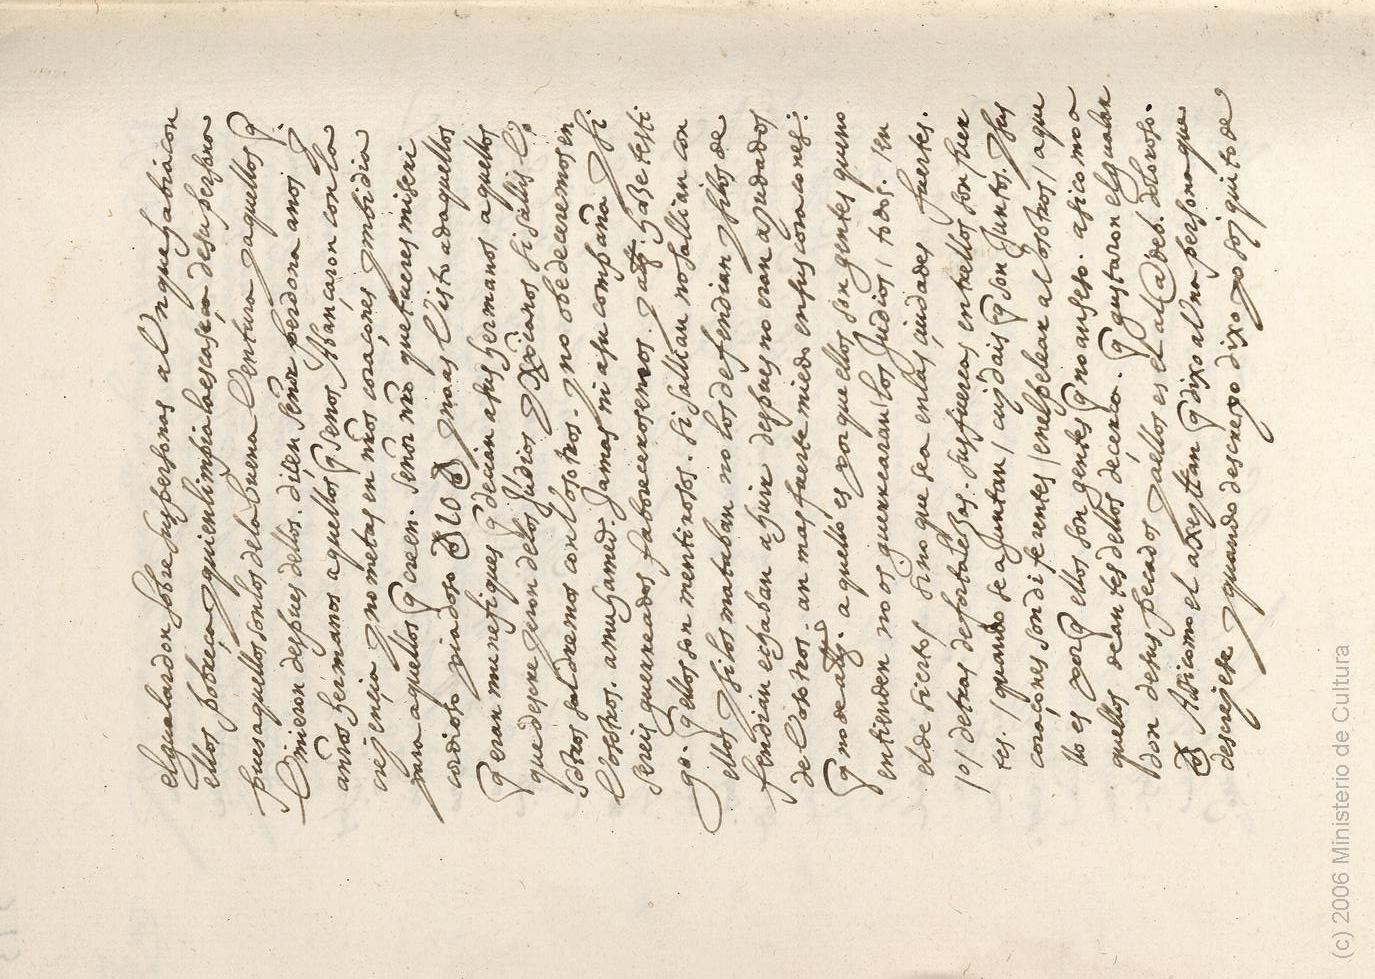 elgualardon sobre sus personas a Un que sabia con
ellos pobreça y quien limpia la escaseça de su persona
pues aquellos son los de la buena Ventura y aquellos q̃
Vinieron despues dellos. diçen señor perdona a nos y
a nr̃os hermanos a aquellos q̃ se nos abançaron con la
creyençia y no metas en nr̃os coraçones ymbidia
para aquellos q̃ creen. señor nr̃o que tu eres miseri
cordioso piadoso 10 y no as Visto ad aquellos
q̃ eran munefiques q̃ deçian a sus hermanos a aquellos
que descreyeron de los Judios y Xp̃ianos si sallis V
sotros saldremos con Vosotros. y no obedeçeremos en
Vosotros. a muhamed. Jamas ni a su compaña. y si
sereis guerreados faboreçeros emos. y all̃. haze testi
go. q̃ ellos son mentirosos. si sallian no sallian con
ellos y si los mataban no los defendian y si los de
fendian echaban a fuir despues no eran ayudados
de Vosotros. an mas fuerte miedo en sus coraçones.
q̃ no de all̃. aquello es por que ellos son gentes que no
entienden no os guerrearan los Judios / todos. / en
el de sierto / sino que sea en las çiudades fuertes.
/ o / detras de fortalezas. sus fuerças entrellos son fuer
tes. / quando se ajuntan / cuydais q̃ son Juntos. y sus
coraçones son diferentes / en el pelear a Vosotros / aque
llo es porq̃ ellos son gentes q̃ no an seso. asi como a
quellos de antes dellos de çerca. q̃ gustaron el gualar
don de sus pecados y a ellos es el alãdeb. doloroso.
Asi como el axeyttan q̃ dixo al una persona que
descreyese y quando descreyo dixo yo soy quito de